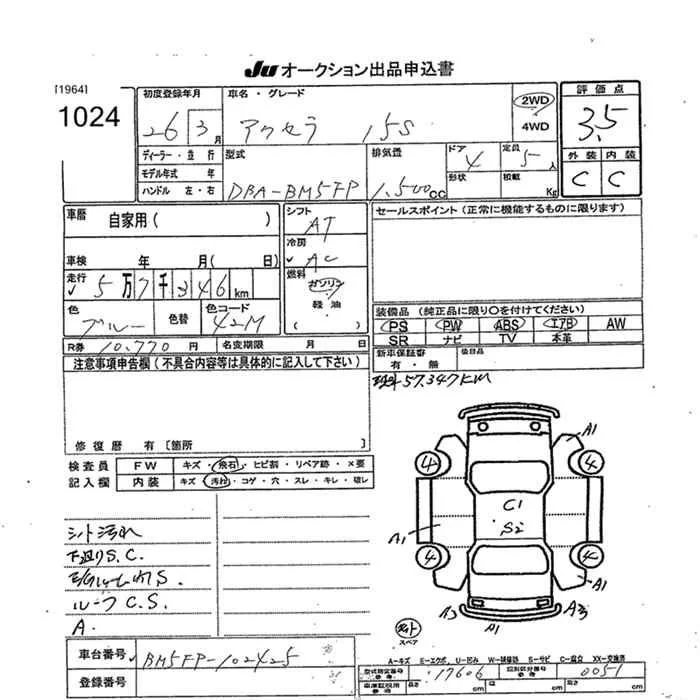 JU オークション出品申込書
[1964]
1024
初度登録年月
26 3月
車名・グレード
アクセラ 15S
2WD
4WD
評価点
3.5
外装 内装
C C
ディーラー・並行
モデル年式 年
ハンドル 左・右
型式
DBA-BM5FP
排気量
1,500cc
ドア 4
形状
定員 5人
積載 Kg
車歴 自家用( )
車検 年 月( 日)
走行 5万7千346km
色 ブルー
色替
色コード 42M
R券 10,770円
名変期限 月 日
シフト
AT
冷房
AC
燃料
ガソリン
軽油
( )
セールスポイント(正常に機能するものに限ります)
装備品(純正品に限り○を付けてください)
PS PW ABS エアB AW
SR ナビ TV 本革
新車保証書
有・無
後日品
57,347KM
注意事項申告欄(不具合内容等は具体的に記入して下さい)
修復歴 有[箇所 ]
検査員
記入欄
FW キズ・飛石・ヒビ割・リペア跡・×要
内装 キズ・汚れ・コゲ・穴・スレ・キレ・破レ
シート汚れ
下廻りS.C.
ルーフC.S.
A.
A1
4 4
C1
S2
A1
4 4
A1
A3 A1 A3
スペア
A-キズ E-エクボ、U-凹み W-補修跡 S-サビ C-腐食 XX-交換済
車台番号 BM5FP-102425
登録番号
型式指定番号 17606
類別区分番号 0051
長さ cm
幅 cm
高さ cm